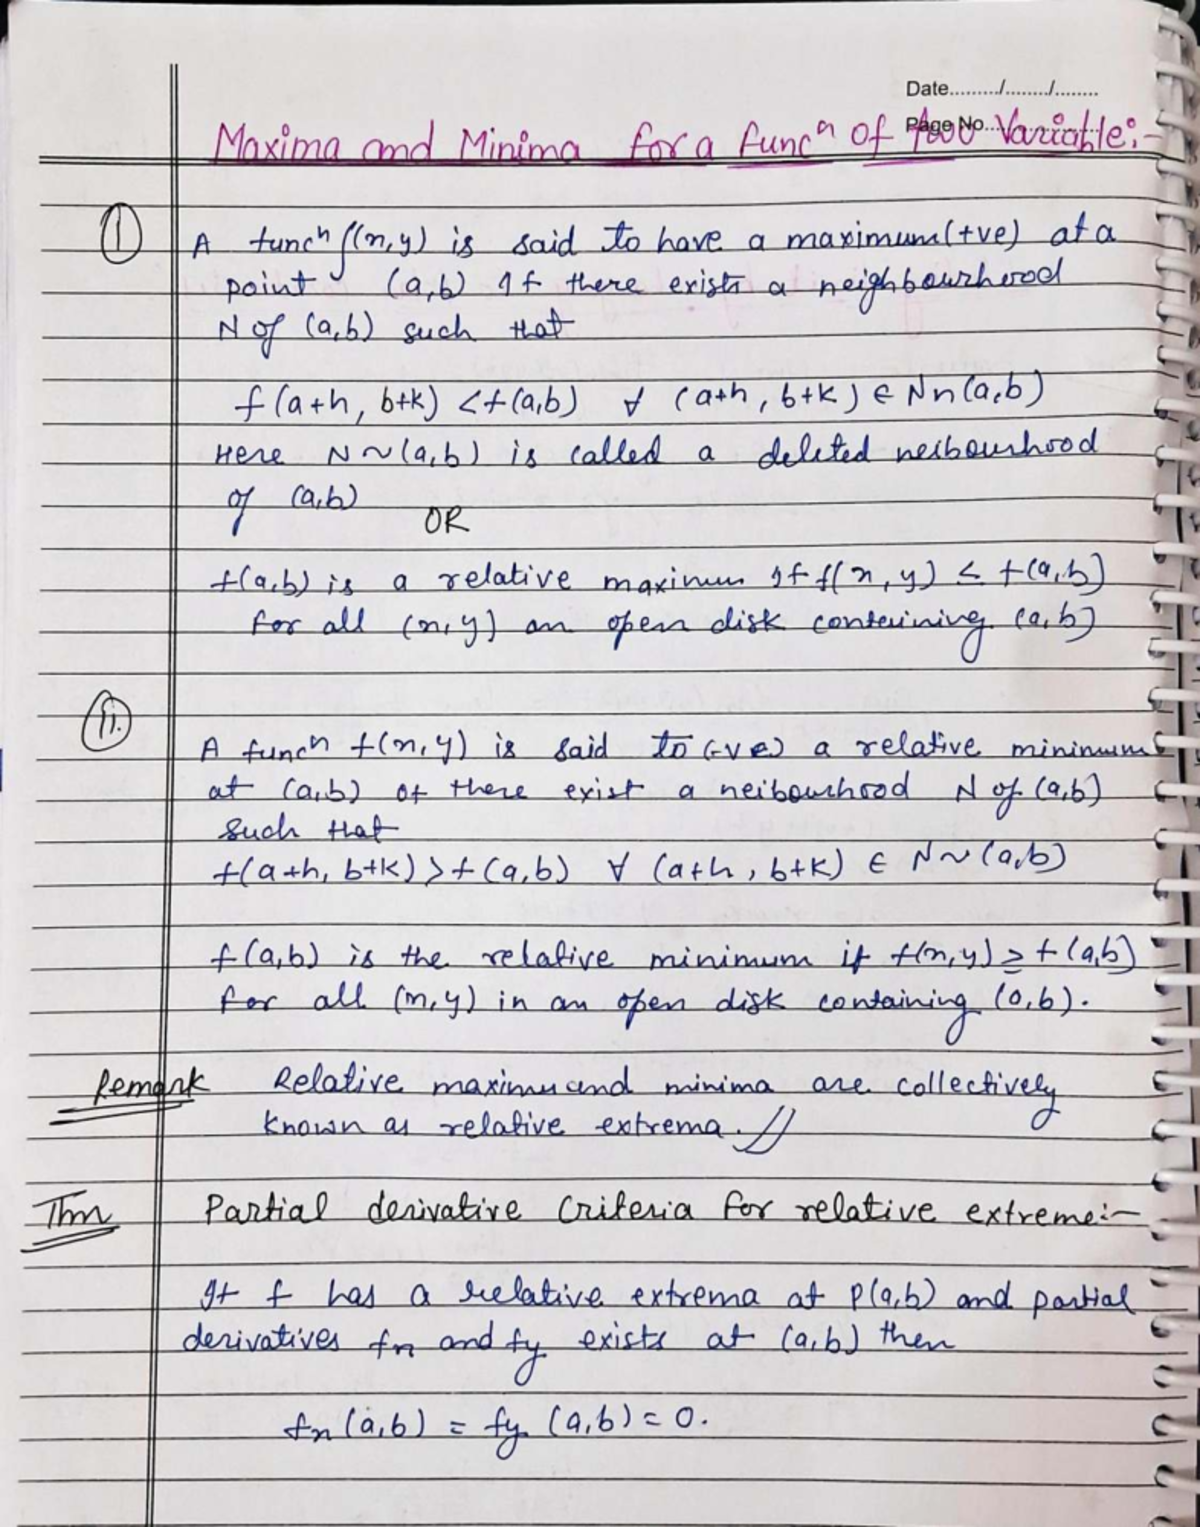 Date........./......../........
Page No..
Maxima and Minima for a funcⁿ of two Variable:-
① A funcⁿ f(x,y) is said to have a maximum(+ve) at a
point (a,b) If there exists a neighbourhood
N of (a,b) such that
f(a+h, b+k) < f(a,b) ∀ (a+h, b+k) ∈ N~(a,b)
Here N~(a,b) is called a deleted neibourhood
of (a,b)
OR
f(a,b) is a relative maximum If f(x,y) ≤ f(a,b)
for all (x,y) an open disk containing (a,b)
ii. A funcⁿ f(x,y) is said to (-ve) a relative minimum
at (a,b) of there exist a neibourhood N of (a,b)
Such that
f(a+h, b+k) > f(a,b) ∀ (a+h, b+k) ∈ N~(a,b)
f(a,b) is the relative minimum if f(x,y) ≥ f(a,b)
for all (x,y) in an open disk containing (a,b).
Remark Relative maximu and minima are collectively
known as relative extrema.//
Thm Partial derivative Criteria for relative extreme:-
If f has a relative extrema at P(a,b) and partial
derivatives fx and fy exists at (a,b) then
fx(a,b) = fy(a,b) = 0.